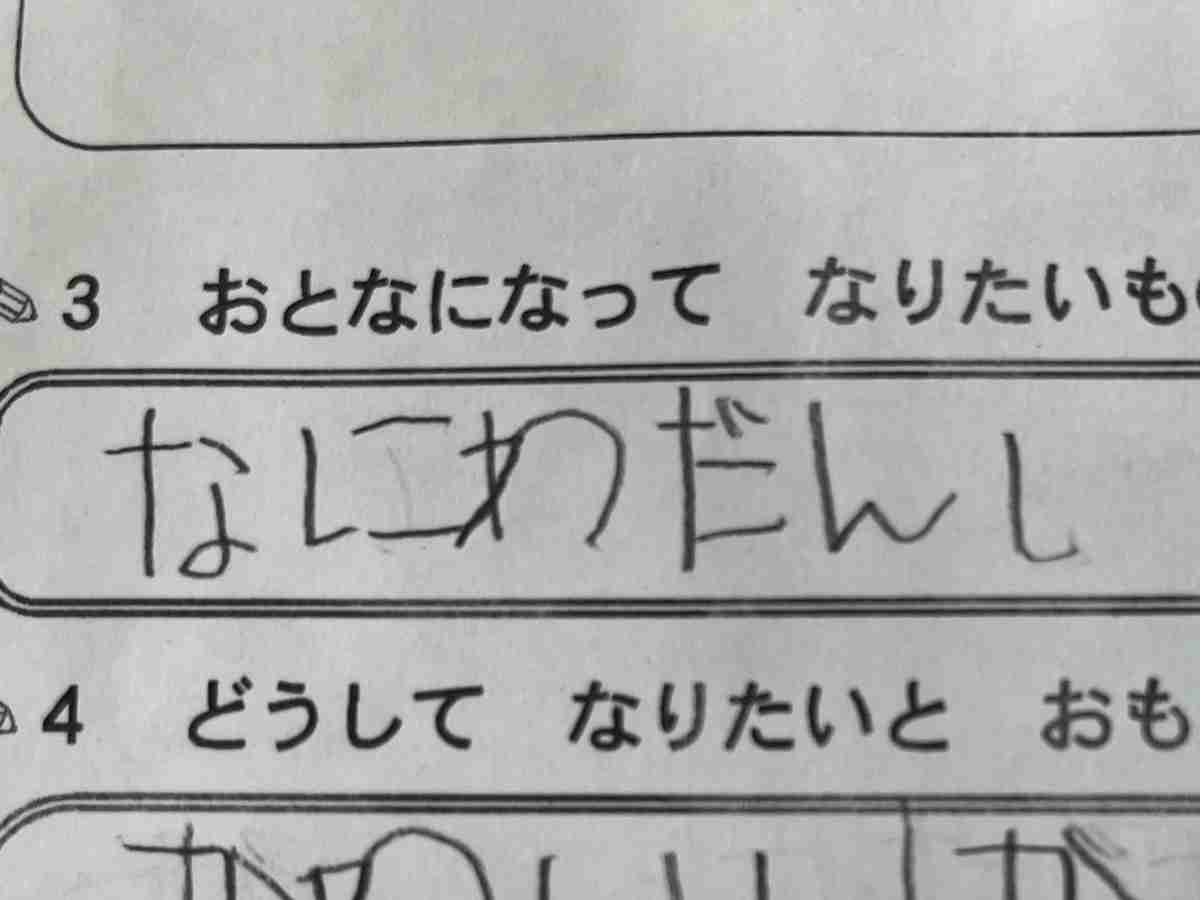 3 おとなになって なりたいも
なにわだんし
4 どうして なりたいと おも
かわいい が